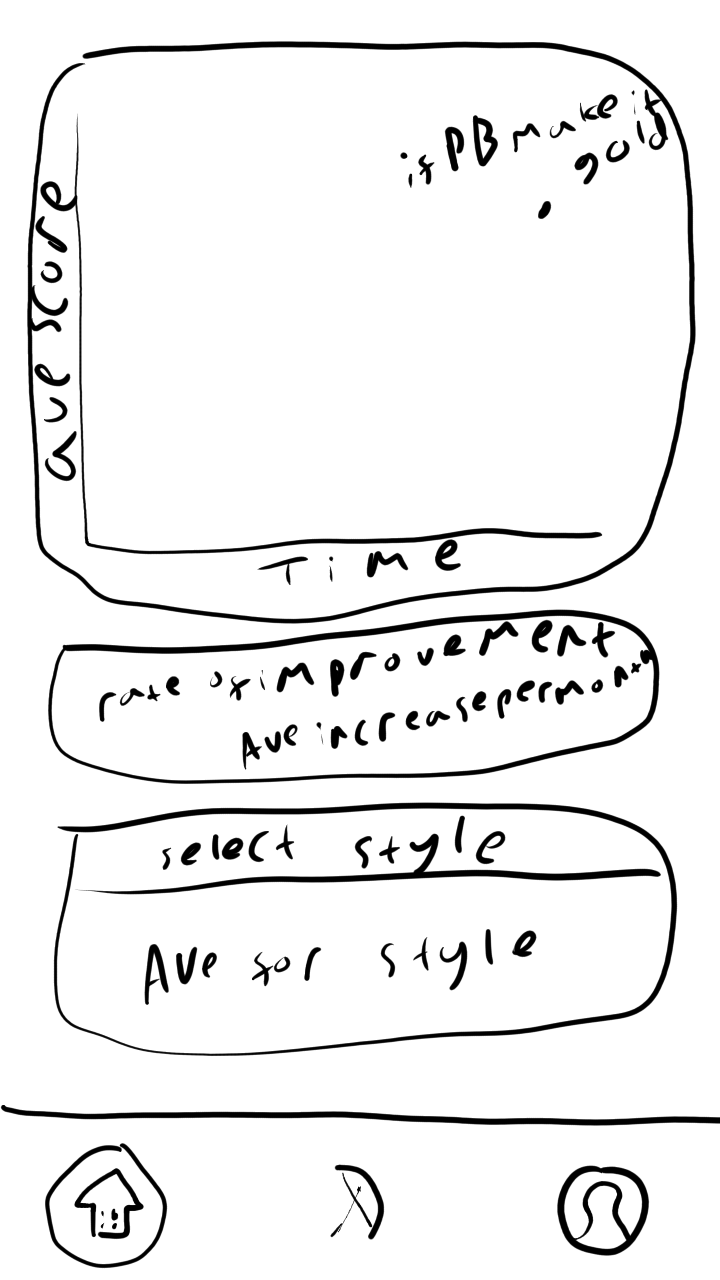 if PB make it
gold
ave score
Time
rate of improvement
Ave increase per month
select style
Ave for style